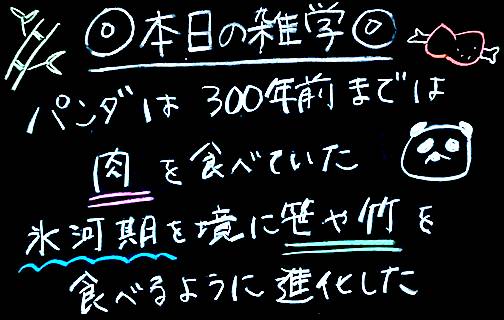 ◎本日の雑学◎
パンダは 300年前までは
肉を食べていた
氷河期を境に笹や竹を
食べるように進化した